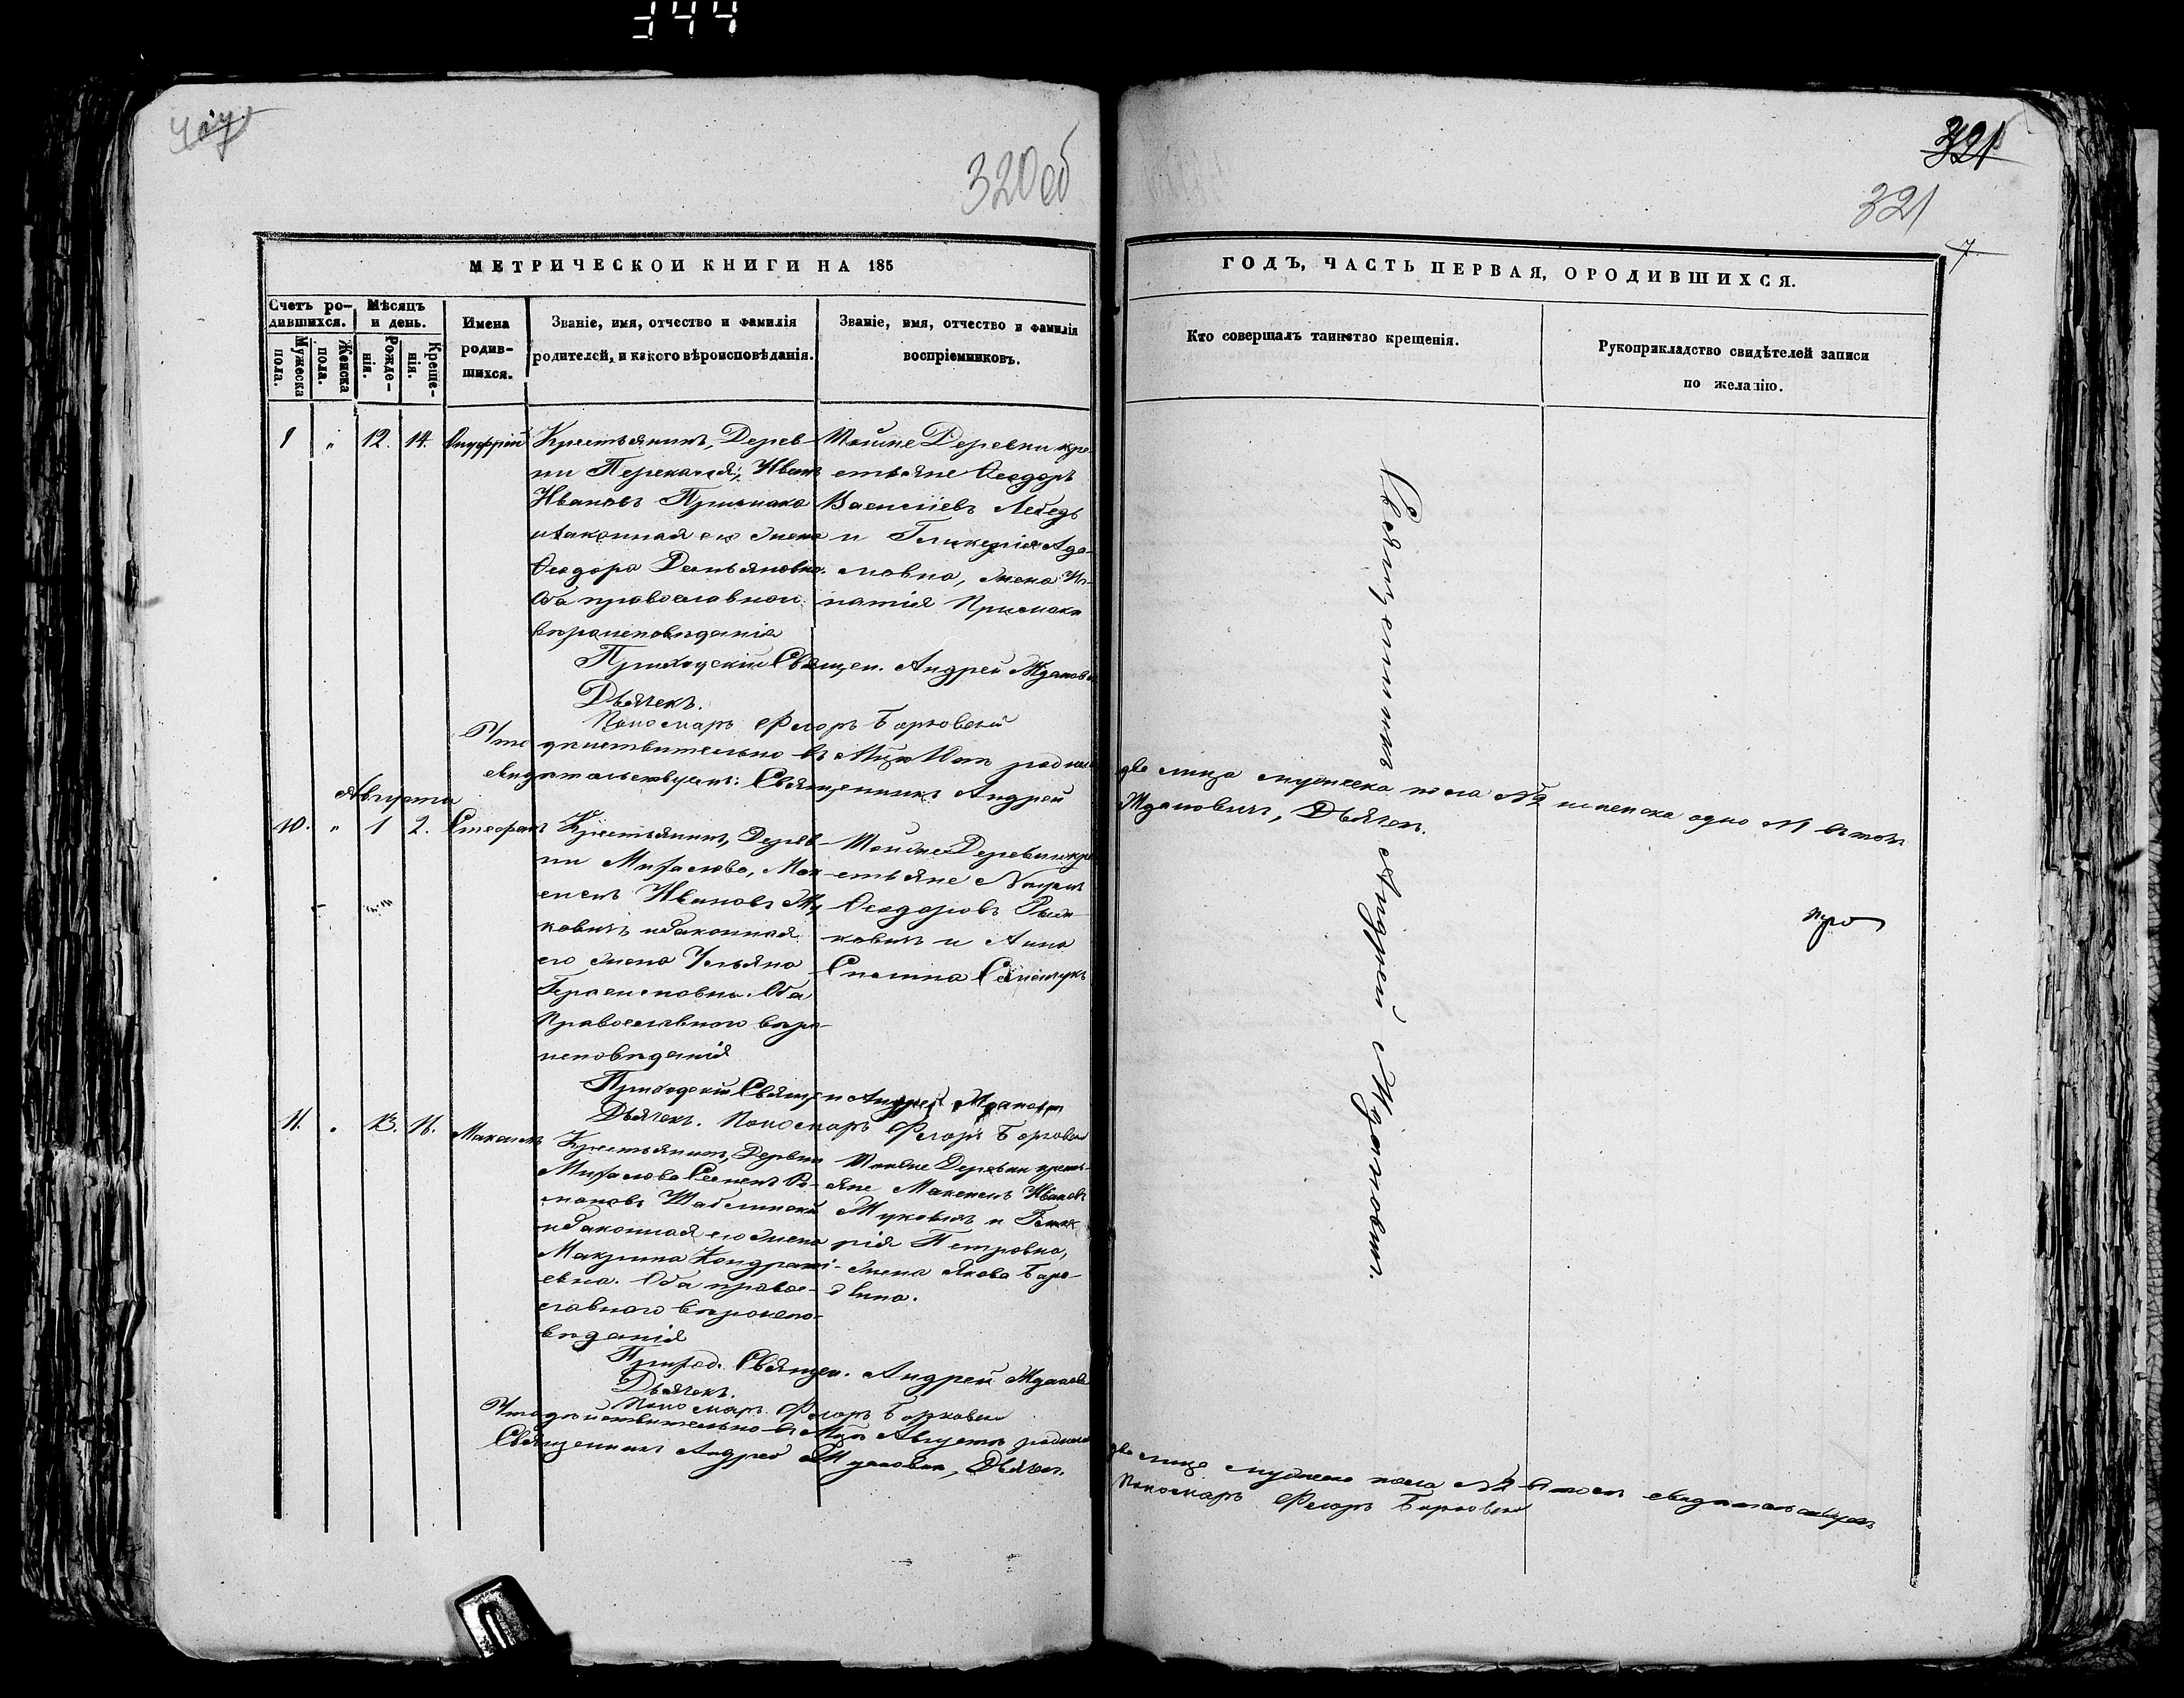 344
320об
321
321
7
МЕТРИЧЕСКОИ КНИГИ НА 185
ГОДЪ, ЧАСТЬ ПЕРВАЯ, ОРОДИВШИХСЯ.
Счетъ ро-
дившихся.
Мужеска
пола.
Женска
пола.
Мѣсяцъ
и день.
Рожде-
нія.
Креще-
нія.
Имена
родив-
шихся.
Званіе, имя, отчество и фамилія
родителей, и какого вѣроисповѣданія.
Званіе, имя, отчество и фамилія
воспріемниковъ.
Кто совершалъ таинство крещенія.
Рукоприкладство свидѣтелей записи
по желанію.
9 " 12. 14. Онуфрій
Крестьянинъ, Дерев-
ни Перекалля, Иванъ
Ивановъ Примака
изаконная его жена
Ѳеодора Демьяновна.
Оба православного
вѣроисповѣданія
Тойже Деревни кре-
стьяне Ѳеодоръ
Васильевъ Лебедь
и Гликерія Ада-
мовна, жена Иг-
натія Примака
Приходскій Священ. Андрей Жданович
Дьячекъ.
Пономарь Флоръ Борковскій
Что дѣйствительно въ Мцѣ Юлѣ родилось
два лица мужеска пола №2 и женска одно №1 въ томъ
свидѣтельствуемъ: Священникъ Андрей
Ждановичъ, Дьячекъ.
Августа
10. " 1 2. Стефанъ
Крестьянинъ, Дерев-
ни Михалово, Мак-
симъ Ивановъ Жу-
ковичъ изаконная
его жена Ульяна
Герасимовна. Оба
Православного вѣро-
исповѣданія
Тойже Деревни кре-
стьяне
Ѳеодоровъ
ковичъ и Анна
Приходскій Священ Андрей Жданович
Дьячекъ. Пономарь Флоръ Борковскій
11. " 13. 16. Максимъ
Крестьянинъ, Деревни
Михалово Семенъ Ро-
мановъ Шаблинскій
изаконная его жена
Макрина Кондрати-
евна. Оба правос-
лавного вѣроиспо-
вѣданія
Тойже Деревни кресть-
яне Максимъ Ивановъ
Жуковичъ и Глике-
рія Петровна,
жена Якова
Приход. Священ. Андрей Жданович
Дьячекъ.
Пономарь Флоръ Борковскій
Что дѣйствительно въ Мцѣ Августѣ родилось
два лица мужеска пола №2 въ томъ свидѣтельствуемъ
Священникъ Андрей Ждановичъ, Дьячекъ.
Пономарь Флоръ Борковскій
Священникъ Андрей Ждановичъ.